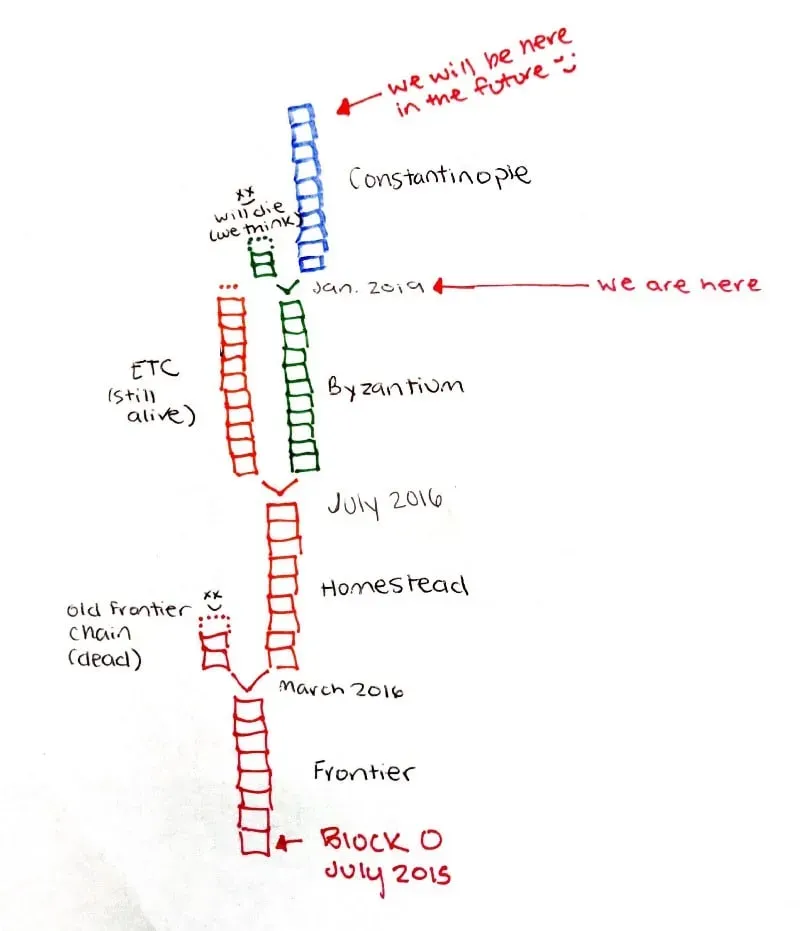 we will be here
in the future
Constantinople
xx
will die
(we think)
Jan. 2019
we are here
ETC
(still
alive)
Byzantium
July 2016
Homestead
xx
old frontier
chain
(dead)
March 2016
Frontier
BLOCK 0
July 2015